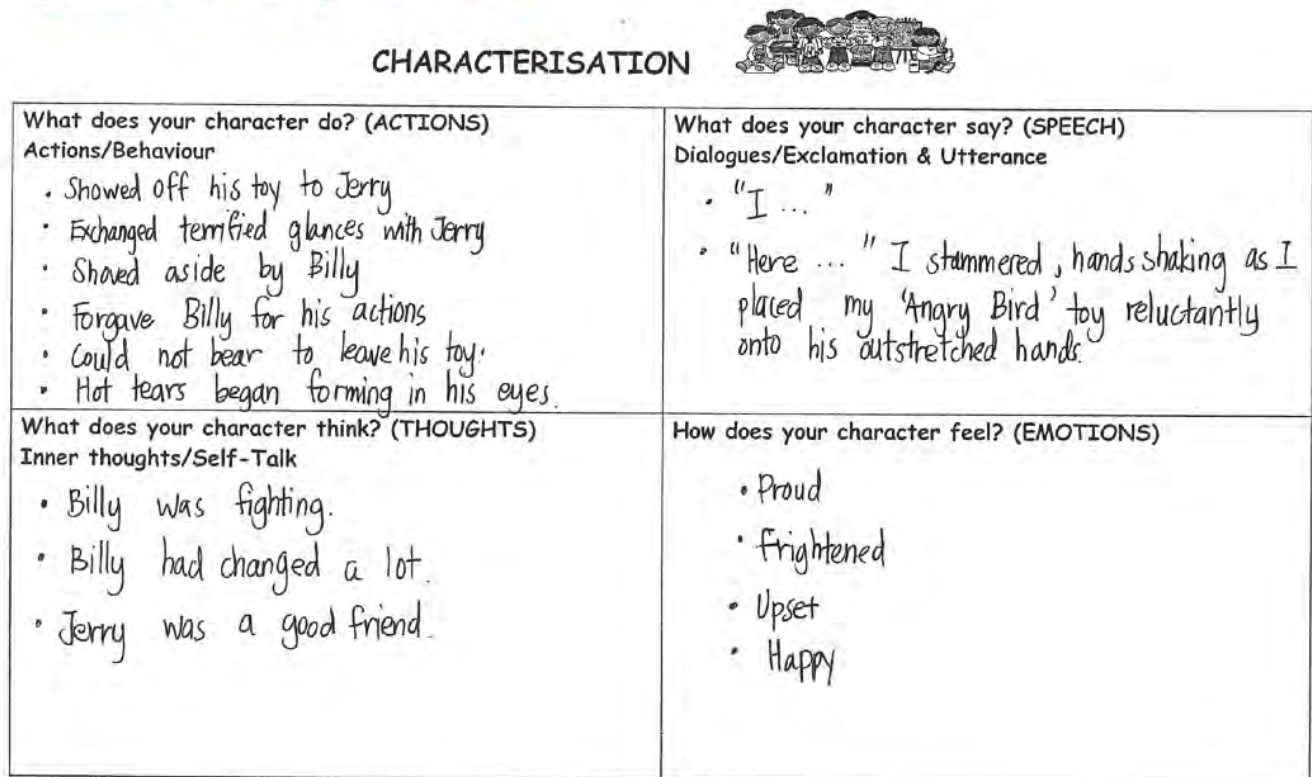 CHARACTERISATION
What does your character do? (ACTIONS)
Actions/Behaviour
• Showed off his toy to Jerry
• Exchanged terrified glances with Jerry
• Shoved aside by Billy
• Forgave Billy for his actions
• Could not bear to leave his toy.
• Hot tears began forming in his eyes.
What does your character say? (SPEECH)
Dialogues/Exclamation & Utterance
• "I ..."
• "Here ..." I stammered, hands shaking as I
placed my 'Angry Bird' toy reluctantly
onto his outstretched hands.
What does your character think? (THOUGHTS)
Inner thoughts/Self-Talk
• Billy was fighting.
• Billy had changed a lot.
• Jerry was a good friend.
How does your character feel? (EMOTIONS)
• Proud
• Frightened
• Upset
• Happy